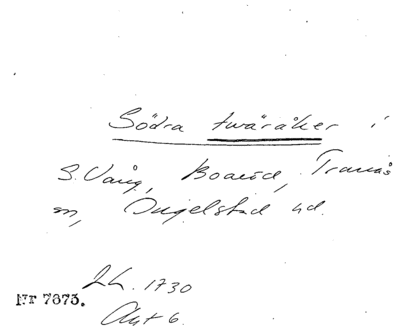 Södra twäråker i
S. Vång, Boaröd, Tranås
sn, Ingelstad hd.
LL. 1730
Akt 6.
Nr 7873.